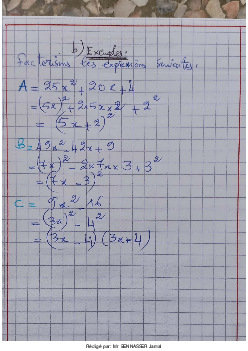 b) Exemples:
Factorisons les expressions suivantes:
A = 25x² + 20x + 4
= (5x)² + 2×5x×2 + 2²
= (5x + 2)²
B = 49x² - 42x + 9
= (7x)² - 2×7x×3 + 3²
= (7x - 3)²
C = 9x² - 16
= (3x)² - 4²
= (3x - 4)(3x + 4)
Rédigé par: Mr BENNASSER Jamal